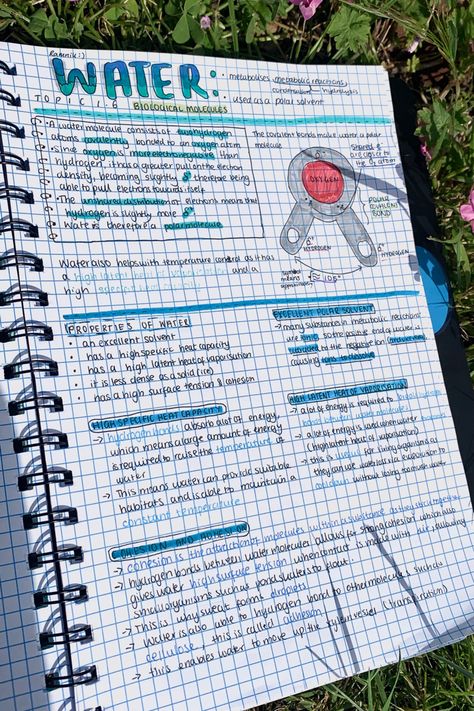 WATER:
• metabolises metabolic reactions,
condensation hydrolysis
TOPIC 1.6 BIOLOGICAL MOLECULES
• used as a polar solvent
• A water molecule consists of two hydrogen
atoms covalently bonded to an oxygen atom.
• Since oxygen is more electronegative than
hydrogen, it has a greater pull on the electron
density, becoming slightly δ⁻ therefore being
able to pull electrons towards itself.
• The uneven distribution of electrons means that
hydrogen is slightly more δ⁺
• Water is therefore a polar molecule
The covalent bonds make water a polar
molecule
Shared e⁻
are closer to the
O atom
OXYGEN
POLAR
COVALENT
BOND
δ⁺
HYDROGEN
δ⁺
HYDROGEN
≈ 105°
Water also helps with temperature control as it has
a high latent heat of vaporisation and a
high specific heat capacity
PROPERTIES OF WATER
• an excellent solvent
• has a high specific heat capacity
• has a high latent heat of vaporisation
• it is less dense as a solid (ice)
• has a high surface tension & cohesion
EXCELLENT POLAR SOLVENT
→ Many substances in metabolic reactions
are ionic, so the positive end of water is
attracted to the negative ion
causing ions to dissolve
HIGH SPECIFIC HEAT CAPACITY
→ hydrogen bonds absorb a lot of energy,
which means a large amount of energy
is required to raise the temperature of
water
→ This means water can provide suitable
habitats and is able to maintain a
constant temperature
HIGH LATENT HEAT OF VAPORISATION
→ a lot of energy is required to break hydrogen
bonds between water molecules
→ a lot of energy is used when water evaporates
(High latent heat of vaporisation)
→ this is useful for living organisms as
they can use water loss via evaporation to
cool down without losing too much water
COHESION AND ADHESION
→ cohesion is the attraction of molecules within a substance
→ hydrogen bonds between water molecules allows for strong cohesion which also
gives water high surface tension when contact is made with air, allowing
small organisms such as pond skaters to float.
→ This is why sweat forms droplets
→ Water is also able to hydrogen bond to other molecules such as
cellulose, this is called adhesion
→ this enables water to move up the xylem vessel (transpiration)